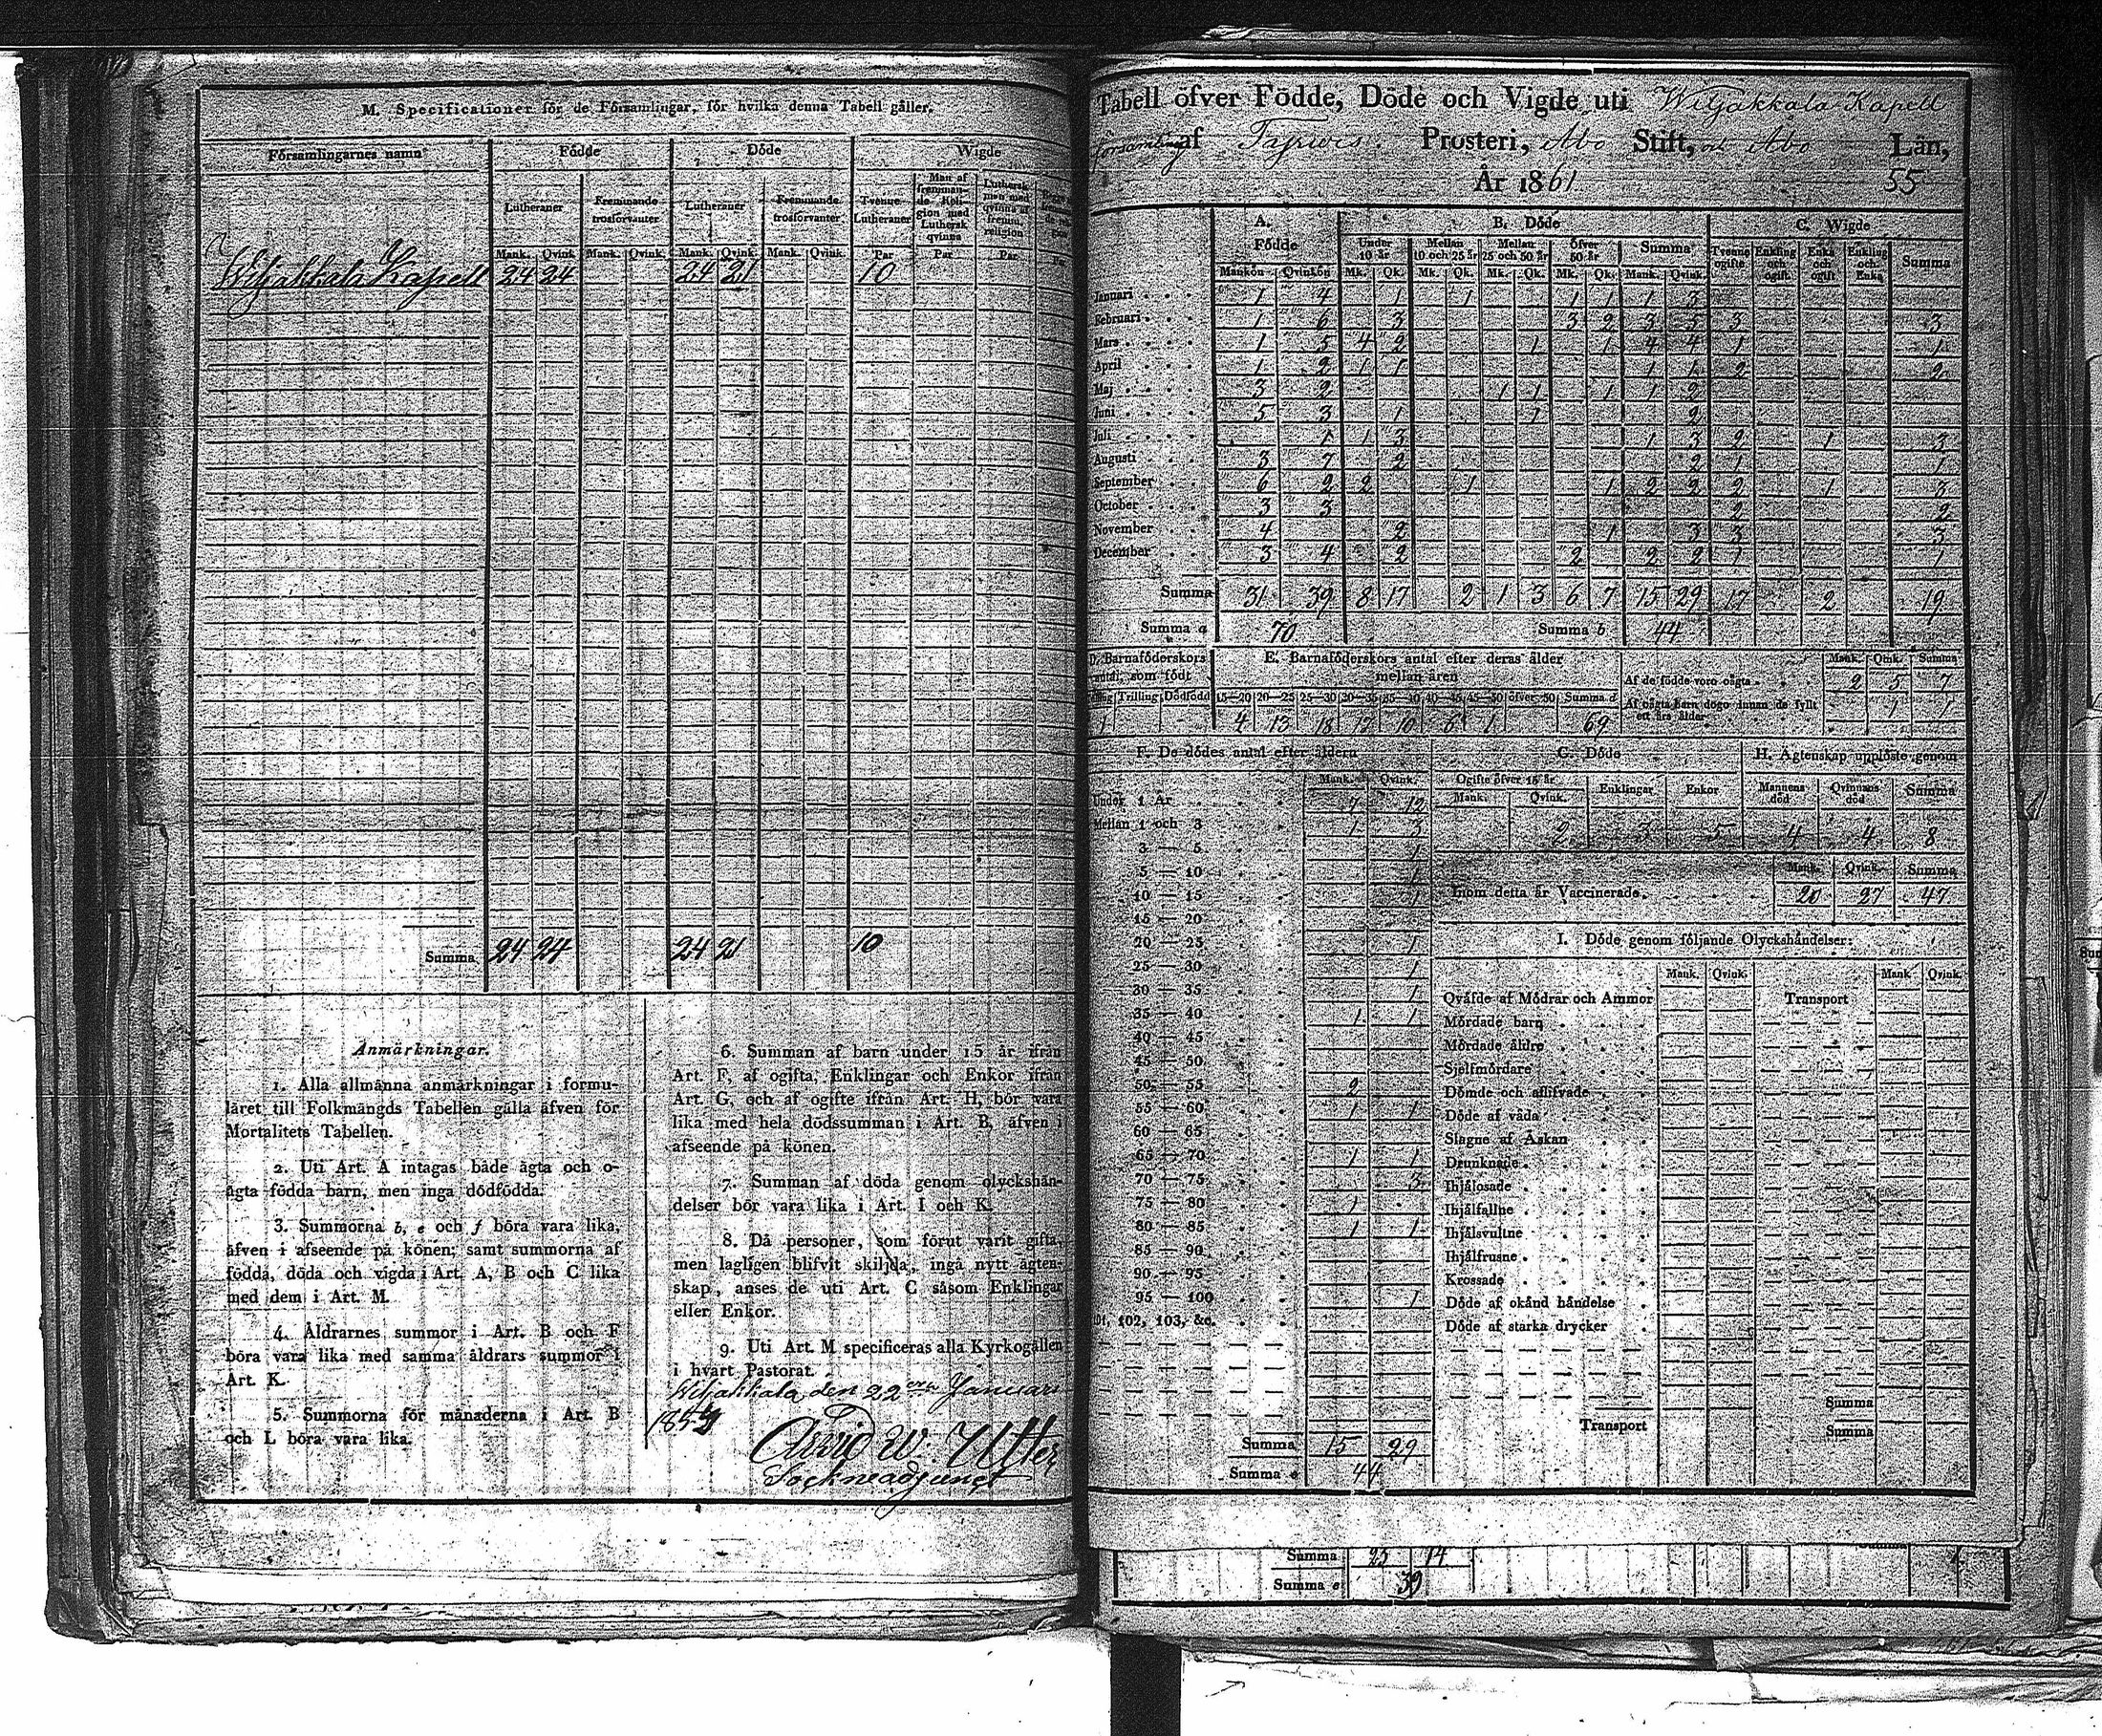 M. Specificationer för de Församlingar, för hvilka denna Tabell gäller.
Församlingarnes namn Födde Döde Wigde
Lutheraner Fremmande trosförvanter Lutheraner Fremmande trosförvanter Tvenne Lutheraner Man af fremmande Religion med Luthersk qvinna Luthersk man med qvinna af fremm. religion
Mank. Qvink. Mank. Qvink. Mank. Qvink. Mank. Qvink. Par Par Par
Wiljakkala Kapell 24 24 24 21 10
Summa 24 24 24 21 10
Anmärkningar.
1. Alla allmänna anmärkningar i formu-
läret till Folkmängds Tabellen gälla äfven för
Mortalitets Tabellen.
2. Uti Art. A intagas både ägta och o-
ägta födda barn, men inga dödfödda.
3. Summorna b, e och f böra vara lika,
äfven i afseende på könen; samt summorna af
födda, döda och vigda i Art. A, B och C lika
med dem i Art. M.
4. Åldrarnes summor i Art. B och F
böra vara lika med samma åldrars summor i
Art. K.
5. Summorna för månaderna i Art. B
och L böra vara lika.
6. Summan af barn under 15 år ifrån
Art. F, af ogifta, Enklingar och Enkor ifrån
Art. G, och af ogifte ifrån Art. H, bör vara
lika med hela dödssumman i Art. B, äfven i
afseende på könen.
7. Summan af döda genom olyckshän-
delser bör vara lika i Art. I och K.
8. Då personer, som förut varit gifta,
men lagligen blifvit skiljda, ingå nytt ägten-
skap, anses de uti Art. C såsom Enklingar
eller Enkor.
9. Uti Art. M specificeras alla Kyrkogällen
i hvart Pastorat.
Wiljakkala den 22 Januari
Arvid W. Utter
Sockneadjunct
Tabell öfver Födde, Döde och Vigde uti Wiljakkala Kapell
församling af Prosteri, Åbo Stift, och Åbo Län,
År 1861 55
A. Födde B. Döde C. Wigde
Under 10 år Mellan 10 och 25 år Mellan 25 och 50 år Öfver 50 år Summa Tvenne ogifte Enkling och ogift Enka och ogift Enkling och Enka Summa
Mankön Qvinkön Mk. Qk. Mk. Qk. Mk. Qk. Mk. Qk. Mank. Qvink.
Januari 1 4 1 1 1 1 1 3
Februari 1 6 3 3 2 3 5 3 3
Mars 1 5 4 2 1 1 4 4 1 1
April 1 2 1 1 1 1 2 2
Maj 3 2 1 1 1 1 2
Juni 5 3 1 1 2
Juli 1 1 3 1 3 2 1 3
Augusti 3 7 2 2 1 1
September 6 2 2 1 1 2 2 2 1 3
October 3 3 2 2
November 4 2 1 3 3 3
December 3 4 2 2 2 2 1 1
Summa 31 39 8 17 2 1 3 6 7 15 29 17 2 19
Summa a 70 Summa b 44
D. Barnaföderskors antal, som födt E. Barnaföderskors antal efter deras ålder mellan åren Mank. Qink. Summa
Af de födde voro oägta 2 5 7
Trilling Dödfödd 15—20 20—25 25—30 30—35 35—40 40—45 45—50 öfver 50 Summa d
Af oägta Barn dogo innan de fyllt ett års ålder 1 1
1 4 13 18 17 10 6 1 69
F. De dödes antal efter åldern G. Döde H. Ägtenskap upplöste genom
Mank. Qvink. Ogifte öfver 15 år Enklingar Enkor Mannens död Qvinnans död Summa
Under 1 År 7 12 Mank. Qvink.
Mellan 1 och 3 1 3 2 3 5 4 4 8
3 — 5 1
5 — 10 1 Mank. Qvink. Summa
10 — 15 1 Inom detta år Vaccinerade 20 27 47
15 — 20
20 — 25 1 I. Döde genom följande Olyckshändelser:
25 — 30 1 Mank. Qvink. Mank. Qvink.
30 — 35 1 Qväfde af Mödrar och Ammor Transport
35 — 40 1 1 Mördade barn
40 — 45 Mördade äldre
45 — 50 Sjelfmördare
50 — 55 2 Dömde och aflifvade
55 — 60 1 1 Döde af våda
60 — 65 Slagne af Åskan
65 — 70 1 1 Drunknade
70 — 75 3 Ihjälosade
75 — 80 1 Ihjälfallne
80 — 85 1 1 Ihjälsvultne
85 — 90 Ihjälfrusne
90 — 95 Krossade
95 — 100 1 Döde af okänd händelse
101, 102, 103, &c. Döde af starka drycker
Summa
Transport Summa
Summa 15 29
Summa e 44
Summa 25 14
Summa e 39